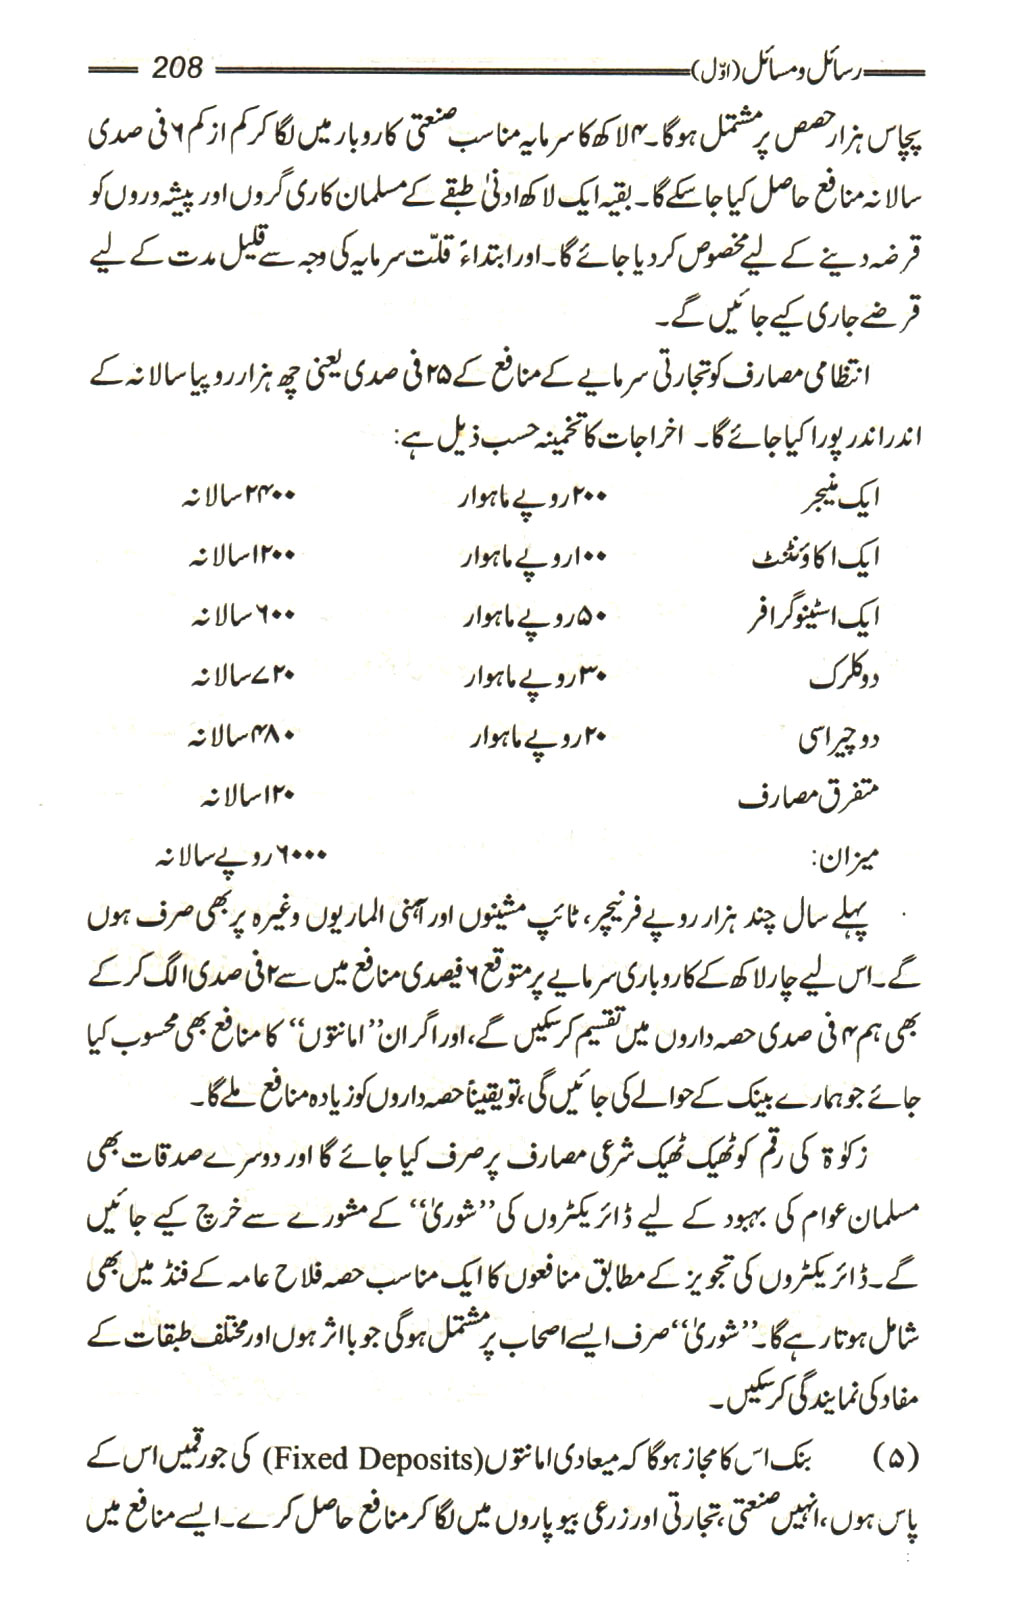 رسائل و مسائل (اوّل) 208
پچاس ہزار حصص پر مشتمل ہوگا۔ ۴ لاکھ کا سرمایہ مناسب صنعتی کاروبار میں لگا کر کم از کم ۶ فی صدی
سالانہ منافع حاصل کیا جاسکے گا۔ بقیہ ایک لاکھ ادنیٰ طبقے کے مسلمان کاری گروں اور پیشہ وروں کو
قرضہ دینے کے لیے مخصوص کردیا جائے گا۔ اور ابتداءً قلّت سرمایہ کی وجہ سے قلیل مدت کے لیے
قرضے جاری کیے جائیں گے۔
انتظامی مصارف کو تجارتی سرمایے کے منافع کے ۲۵ فی صدی یعنی چھ ہزار روپیا سالانہ کے
اندر اندر پورا کیا جائے گا۔ اخراجات کا تخمینہ حسب ذیل ہے:
ایک منیجر ۲۰۰ روپے ماہوار ۲۴۰۰ سالانہ
ایک اکاؤنٹنٹ ۱۰۰ روپے ماہوار ۱۲۰۰ سالانہ
ایک اسٹینوگرافر ۵۰ روپے ماہوار ۶۰۰ سالانہ
دو کلرک ۳۰ روپے ماہوار ۷۲۰ سالانہ
دو چپراسی ۲۰ روپے ماہوار ۴۸۰ سالانہ
متفرق مصارف ۱۲۰ سالانہ
میزان: ۶۰۰۰ روپے سالانہ
پہلے سال چند ہزار روپے فرنیچر، ٹائپ مشینوں اور آہنی الماریوں وغیرہ پر بھی صرف ہوں
گے۔ اس لیے چار لاکھ کے کاروباری سرمایے پر متوقع ۶ فیصدی منافع میں سے ۲ فی صدی الگ کرکے
بھی ہم ۴ فی صدی حصہ داروں میں تقسیم کرسکیں گے، اور اگر ان ’’امانتوں‘‘ کا منافع بھی محسوب کیا
جائے جو ہمارے بینک کے حوالے کی جائیں گی، تو یقیناً حصہ داروں کو زیادہ منافع ملے گا۔
زکوٰۃ کی رقم کو ٹھیک ٹھیک شرعی مصارف پر صرف کیا جائے گا اور دوسرے صدقات بھی
مسلمان عوام کی بہبود کے لیے ڈائریکٹروں کی ’’شوریٰ‘‘ کے مشورے سے خرچ کیے جائیں
گے۔ ڈائریکٹروں کی تجویز کے مطابق منافعوں کا ایک مناسب حصہ فلاح عامہ کے فنڈ میں بھی
شامل ہوتا رہے گا۔ ’’شوریٰ‘‘ صرف ایسے اصحاب پر مشتمل ہوگی جو بااثر ہوں اور مختلف طبقات کے
مفاد کی نمایندگی کرسکیں۔
(۵) بنک اس کا مجاز ہوگا کہ میعادی امانتوں (Fixed Deposits) کی جو رقمیں اس کے
پاس ہوں، انہیں صنعتی، تجارتی اور زرعی بیوپاروں میں لگا کر منافع حاصل کرے۔ ایسے منافع میں